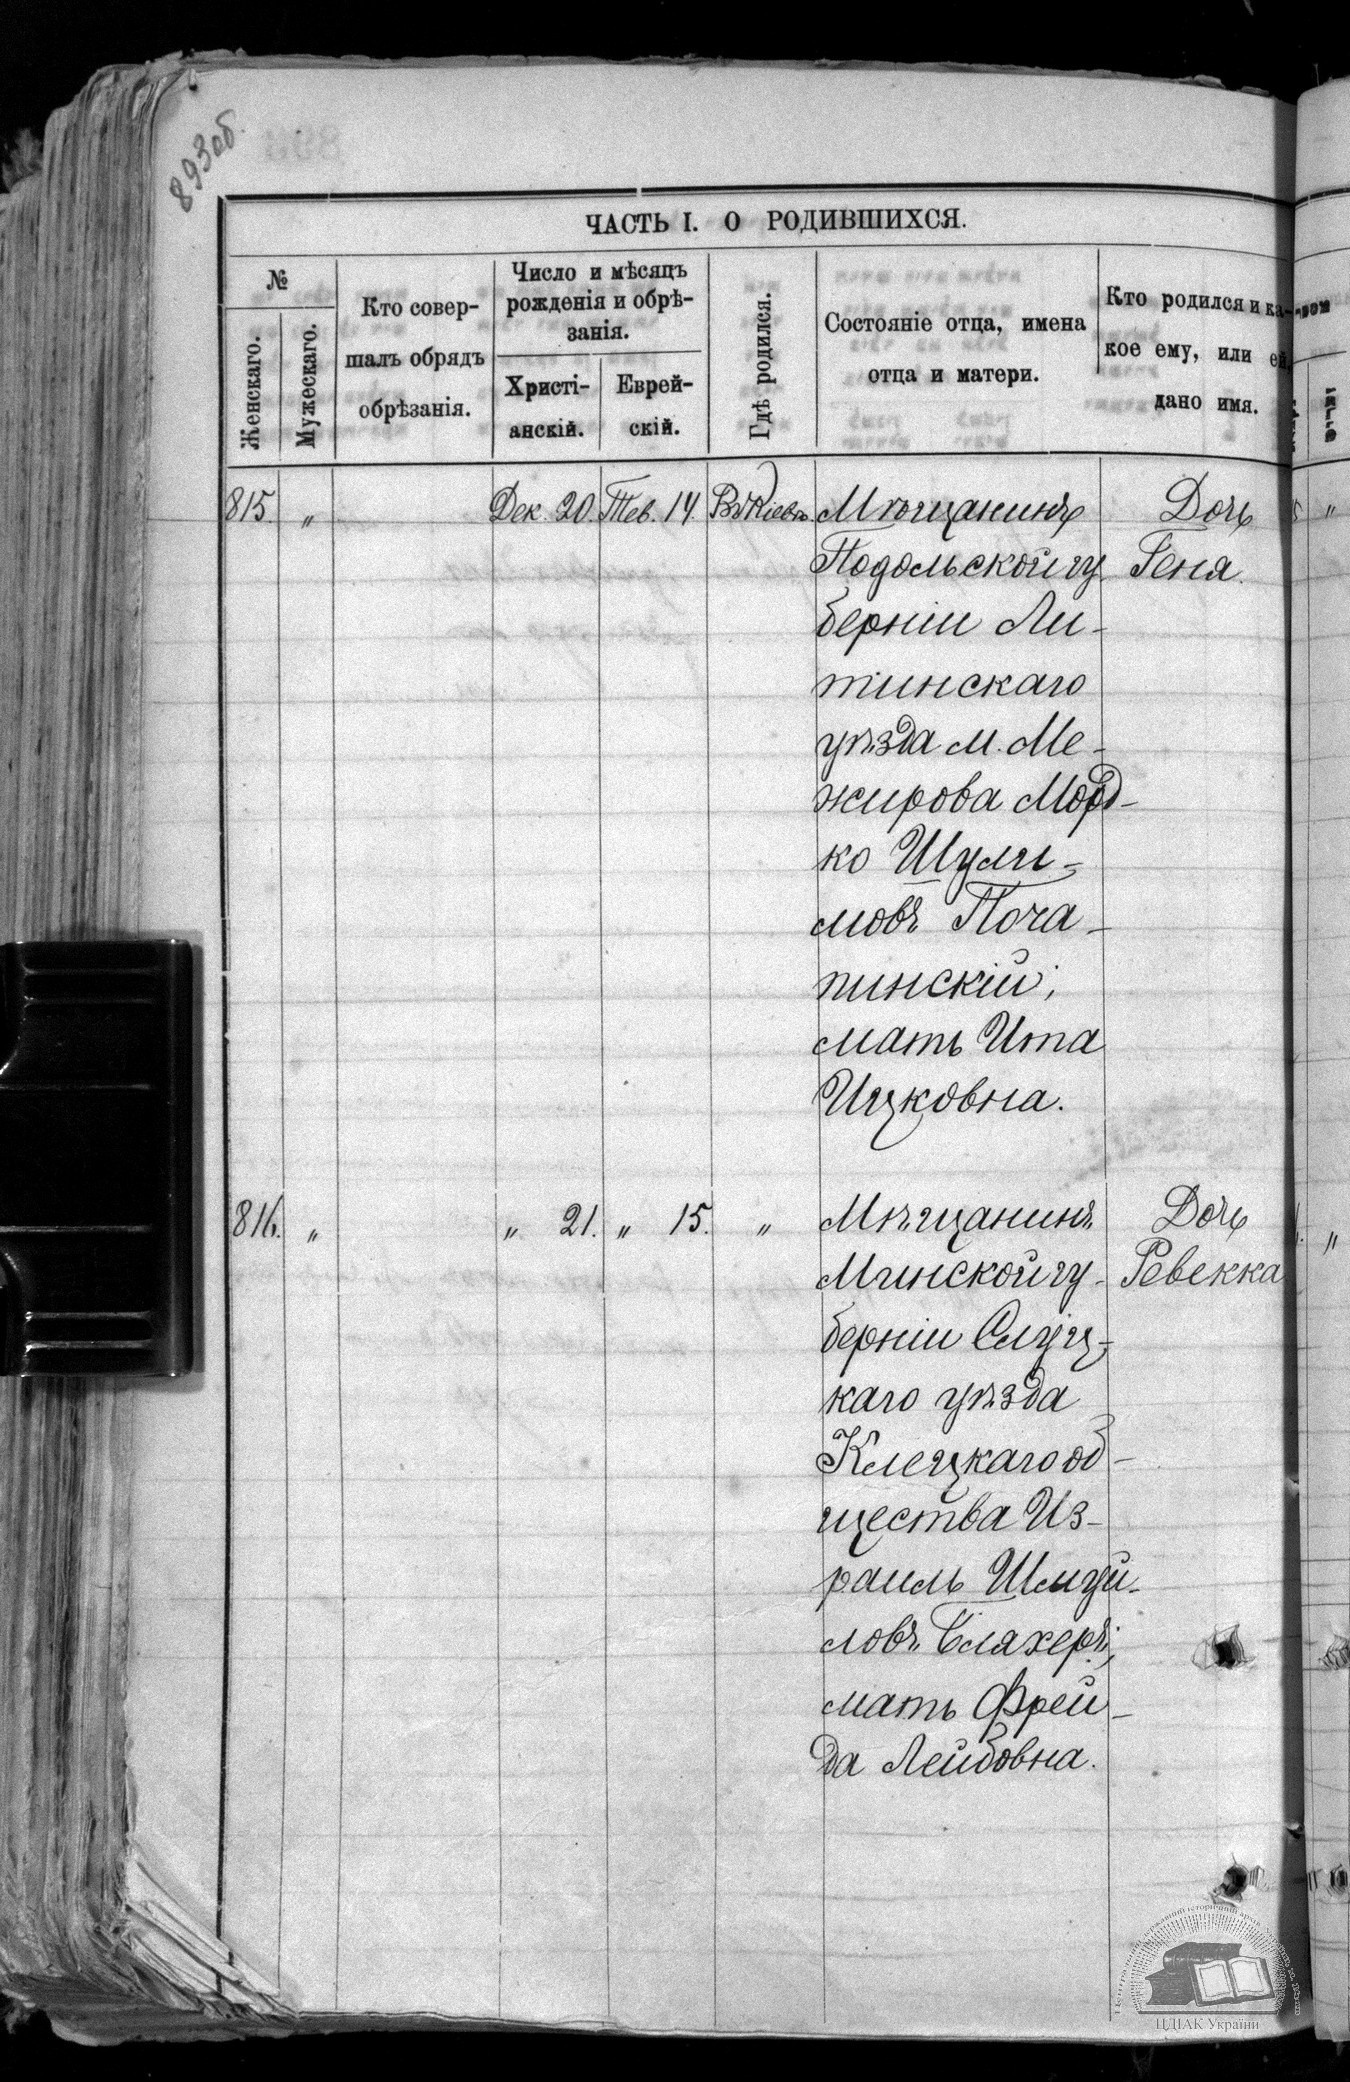 893об.
ЧАСТЬ I. О РОДИВШИХСЯ.
№
Женскаго.
Мужескаго.
Кто совер-
шалъ обрядъ
обрѣзанія.
Число и мѣсяцъ
рожденія и обрѣ-
занія.
Христі-
анскій.
Еврей-
скій.
Гдѣ родился.
Состояніе отца, имена
отца и матери.
Кто родился и ка-
кое ему, или ей,
дано имя.
815. „ Дек. 20. Тев. 14. Въ Кіевѣ. Мѣщанинъ Дочь
Подольской гу Геня.
берніи Ли-
тинскаго
уѣзда м. Ме-
жирова Морд-
ко Шули-
мовъ Поча-
пинскій;
мать Ита
Ицковна.
816. „ „ 21. „ 15. „ Мѣщанинъ Дочь
Минской гу- Ревекка
берніи Слуц-
каго уѣзда
Клецкаго об-
щества Из-
раиль Шмуй-
ловъ Бляхеръ;
мать Фрей-
да Лейбовна.
ЦДІАК України